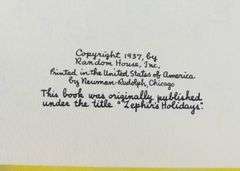 Copyright 1937, by
Random House, Inc.
Printed in the United States of America
by Neuman-Rudolph, Chicago
This book was originally published
under the title "Zephir's Holidays".